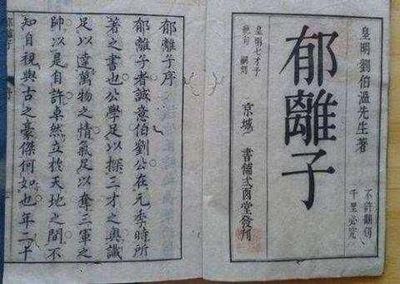 皇明劉伯溫先生著
不許翻刻
千里必究
郁離子
皇明七才子
絕句 嗣刻
京城 書舖 酉堂發刊
郁離子序
郁離子者誠意伯劉公在元季時所
著之書也公學足以探三才之奧識
足以達萬物之情氣足以奪三軍之
帥以是自許卓然立於天地之間不
知自視與古之豪傑何如也年二十